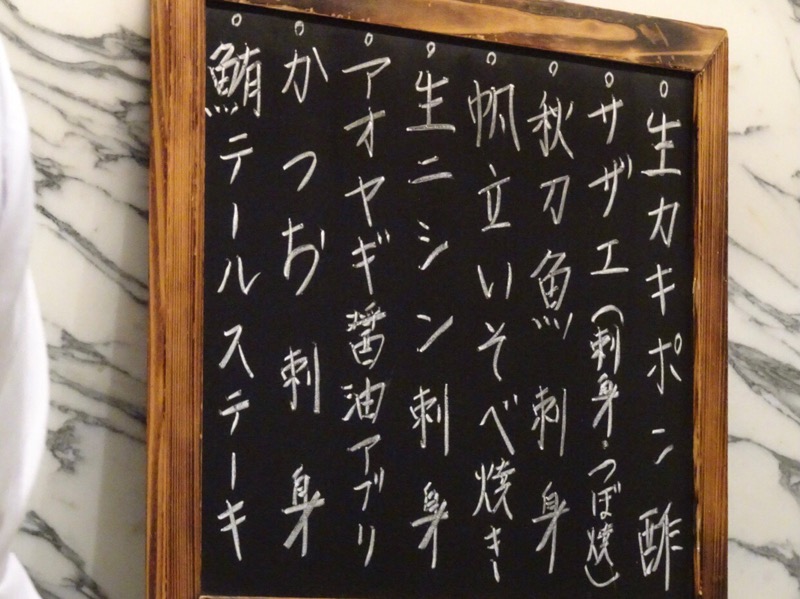 ○生カキポン酢
○サザエ(刺身・つぼ焼)
○秋刀魚刺身
○帆立いそべ焼き
○生ニシン刺身
○アオヤギ醤油アブリ
○かつお刺身
○鮪テールステーキ